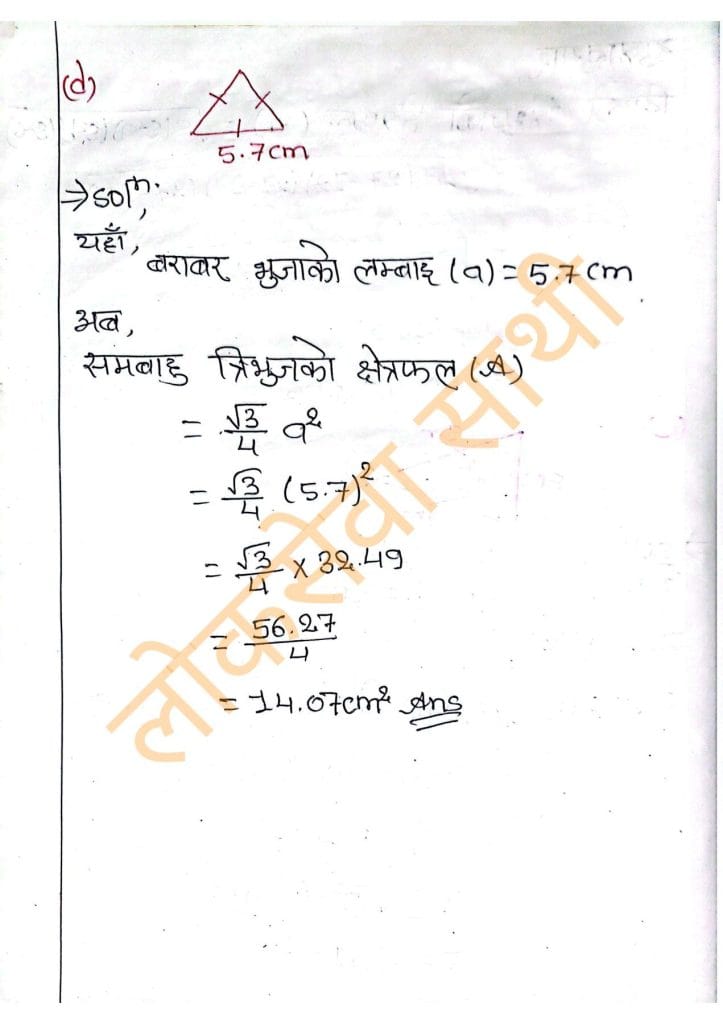 (d)
5.7cm
→ solⁿ.,
यहाँ,
बराबर भुजाको लम्बाइ (a) = 5.7 cm
अब,
समबाहु त्रिभुजको क्षेत्रफल (A)
= √3/4 a²
= √3/4 (5.7)²
= √3/4 × 32.49
= 56.27/4
= 14.07cm² Ans
लोकसेवा साथी